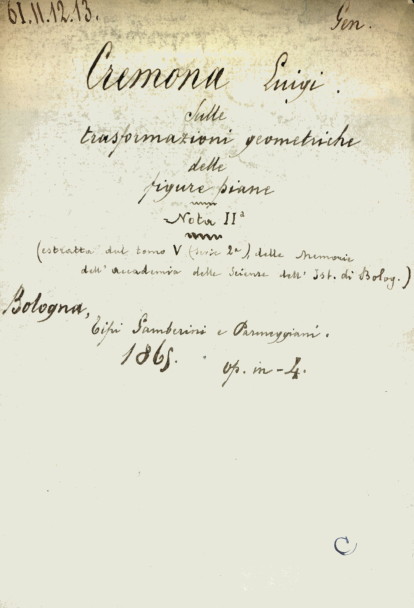 61.11.12.13.
Gen.
Cremona Luigi.
Sulle
trasformazioni geometriche
delle
figure piane
Nota IIª
(estratta dal tomo V (serie 2ª), delle Memorie
dell'accademia delle Scienze dell'Ist. di Bolog.)
Bologna,
Tipi Gamberini e Parmeggiani.
1865.
op. in-4.
C